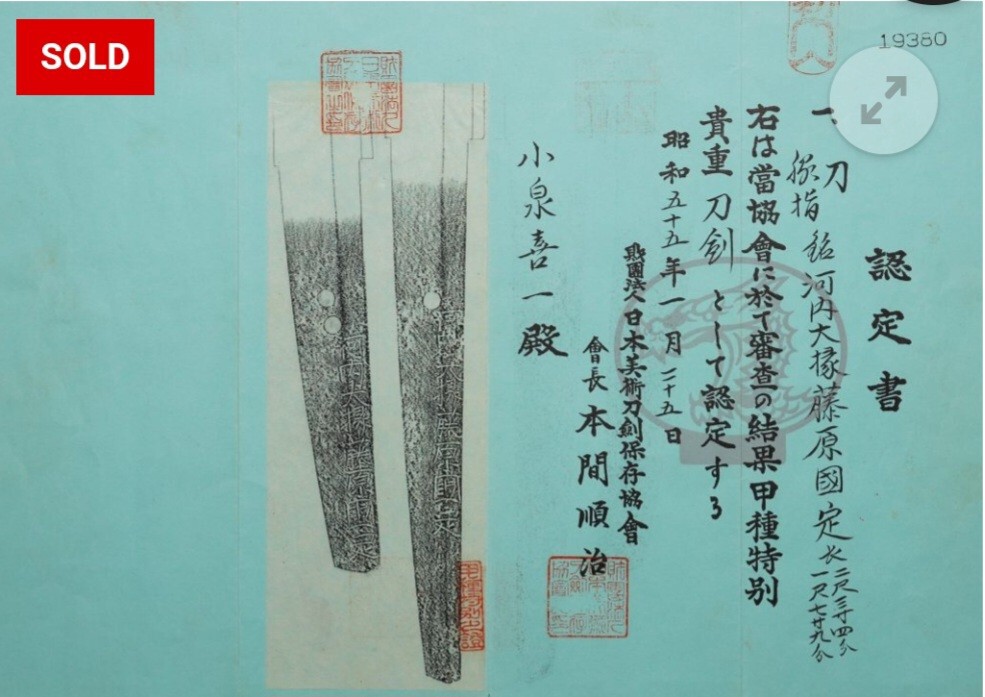 SOLD
19380
認定書
一、刀
脇指
銘河内大掾藤原國定
長二尺三寸四分
一尺七寸九分
右は當協會に於て審査の結果甲種特別
貴重刀剣として認定する
昭和五十五年一月二十五日
財團法人日本美術刀剣保存協會
會長本間順治
小泉喜一殿